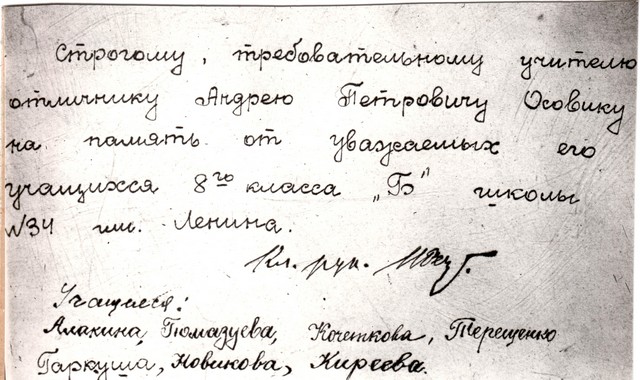 Строгому, требовательному учителю
отличнику Андрею Петровичу Осовику
на память от уважаемых его
учащихся 8го класса „Б" школы
N34 им. Ленина.
Кл. рук.
Учащиеся:
Алахина, Гюмазуева, Кочеткова, Терещенко
Гаркуша, Новикова, Киреева.